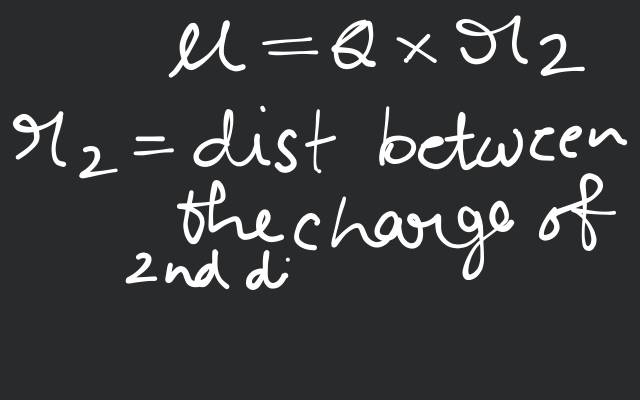 μ = Q × r2
r2 = dist between
the charge of
2nd di